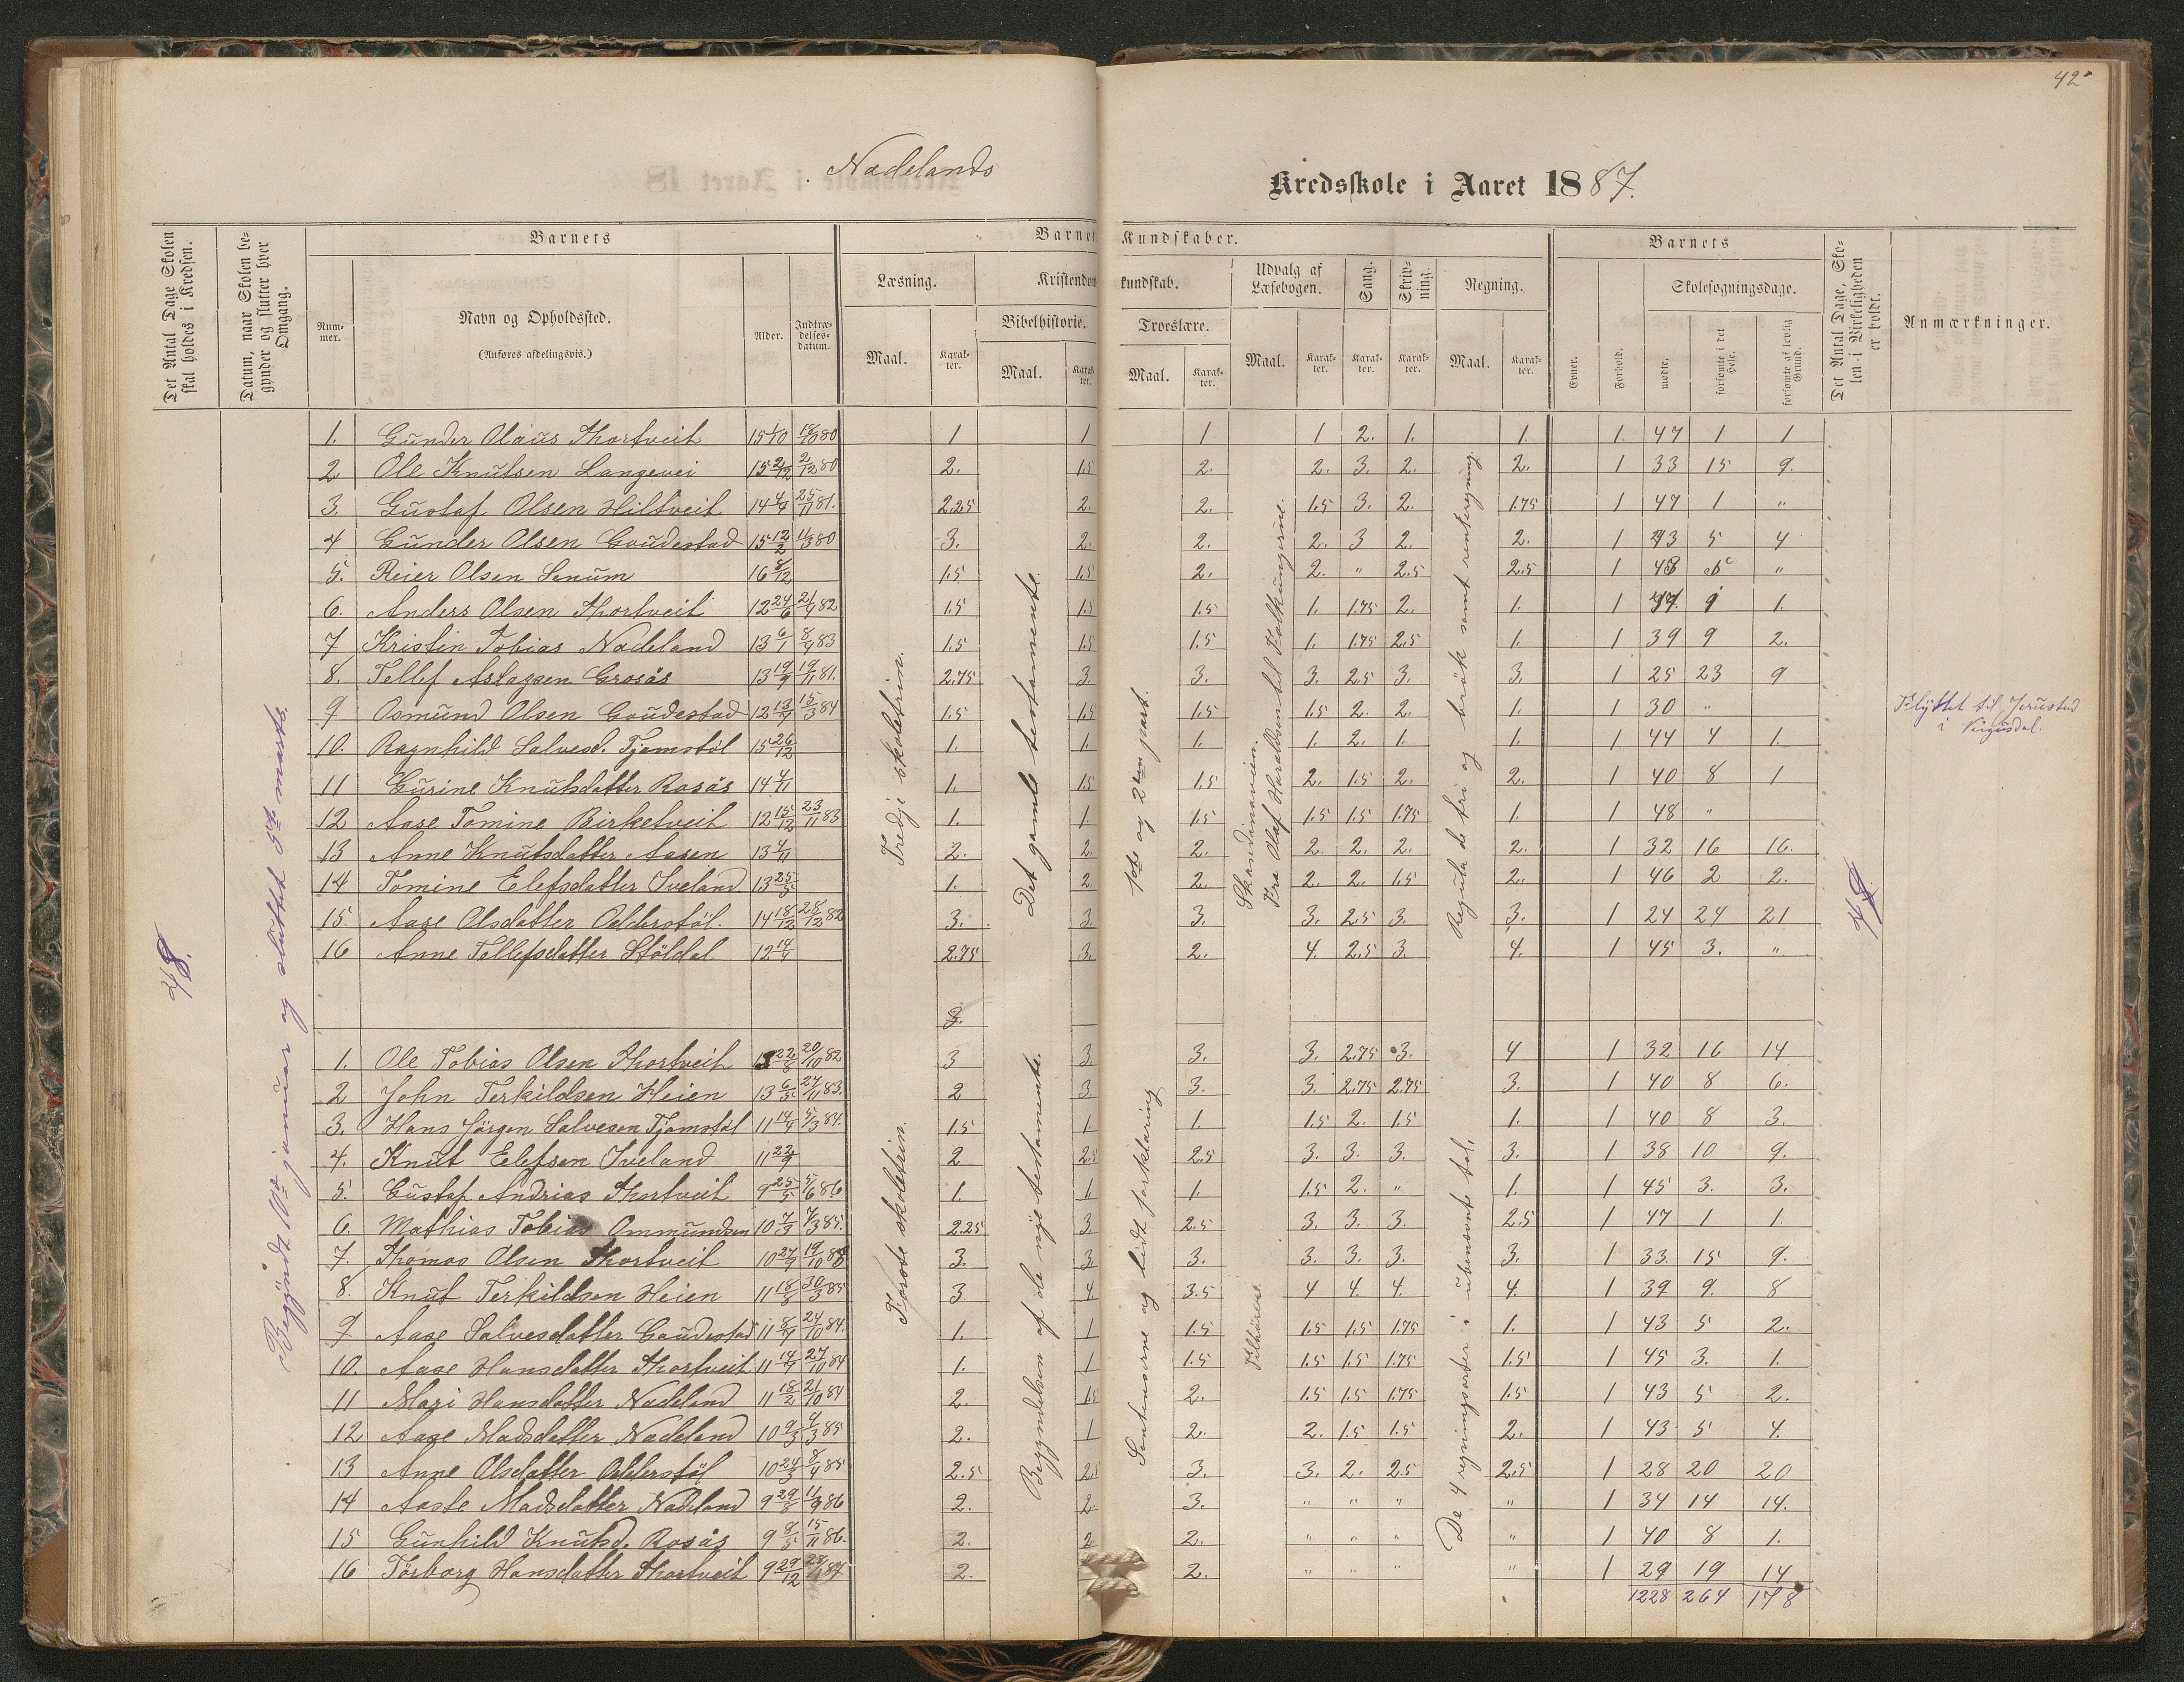 42
Nadelands
Kredsskole i Aaret 1887.
Det Antal Dage Skolen skal holdes i Kredsen.
Datum, naar Skolen begynder og slutter hver Omgang.
Barnets
Nummer.
Navn og Opholdssted.
(Anføres afdelingsvis.)
Alder.
Indtrædelsesdatum.
Barnets Kundskaber.
Læsning.
Maal.
Karakter.
Kristendomskundskab.
Bibelhistorie.
Maal.
Karakter.
Troeslære.
Maal.
Karakter.
Udvalg af Læsebogen.
Maal.
Karakter.
Sang.
Karakter.
Skrivning.
Karakter.
Regning.
Maal.
Karakter.
Barnets
Evner.
Forhold.
Skolesøgningsdage.
mødte.
forsømte i det Hele.
forsømte af lovlig Grund.
Det Antal Dage, Skolen i Virkeligheden er holdt.
Anmærkninger.
48.
Begyndt 10de januar og sluttet 5te marts.
Tredje skoletrin.
Det gamle testamente.
1ste og 2den part.
Skandinavien.
Fra Olaf Haraldsøn til Folkungerne.
Regula de tri og brök samt renteregning.
48
1. Gunder Olaus Thortveit 15 1/10 18/10 80 1 1 1 1 2. 1. 1. 1. 47 1 1
2 Ole Knutsen Langevei 15 2/12 2/12 80 2. 1.5 2. 2. 3. 2. 2. 1 33 15 9.
3. Gustaf Olsen Hiltveit 14 4/9 25/11 81. 2.25 2. 2. 1.5 3. 2. 1.75 1 47 1 "
4 Gunder Olsen Goudestad 15 12/2 11/3 80 3. 2. 2. 2. 3 2. 2. 1 43 5 4
5. Reier Olsen Senum 16 8/12 1.5 1.5 2. 2. " 2.5 2.5 1 48 "
6. Anders Olsen Thortveit 12 24/6 21/9 82 1.5 1.5 1.5 1. 1.75 2. 1. 1 47 1 1.
7 Kristin Tobias Nadeland 13 6/1 8/9 83 1.5 1.5 1.5 1. 1.75 2.5 1. 1 39 9 2.
8. Tellef Aslagsen Grosås 13 19/9 19/11 81. 2.75 3. 3. 3. 2.5 3. 3. 1 25 23 9
9 Osmund Olsen Goudestad 12 13/4 15/3 84 1.5 1.5 1.5 1.5 2. 2. 1. 1 30 " Flyttet til Jerustad i Vigusdal.
10. Ragnhild Salvesd. Tjomstöl 15 26/12 1. 1. 1. 1. 2. 1. 1. 1 44 4 1.
11 Gurine Knutsdatter Rosås 14 4/11 1. 1.5 1.5 2. 1.5 2. 2. 1 40 8 1
12 Aase Tomine Birketveit 12 15/12 23/11 83 1. 1 1.5 1.5 1.5 1.75 1. 1 48 "
13 Anne Knutsdatter Aasen 13 4/11 2. 2. 2. 2. 2. 2. 2. 1 32 16 16.
14 Tomine Elefsdatter Iveland 13 25/5 1. 2. 2. 2. 2. 1.5 2. 1 46 2 2.
15. Aase Olsdatter Odderstöl. 14 18/12 28/12 82 3. 3 3. 3. 2.5 3. 3. 1 24 24 21
16 Anne Tellefsdatter Stöldal 12 14/4 2.75 3. 2. 4. 2.5 3. 4. 1 45 3. "
Förste skoletrin.
Begyndelsen af de nye testamente.
Sentenserne og lidt forklaring
Tilhörere.
De 4 regningsarter i ubenævnt tal.
3.
1. Ole Tobias Olsen Thortveit 13 22/8 20/10 82 3 3. 3. 3. 2.75 3. 4 1 32 16 14
2 John Terkildsen Heien 13 6/5 27/11 83. 2 3 3. 3. 2.75 2.75 3. 1 40 8 6.
3. Hans Jörgen Salvesen Tjomstöl 11 14/4 5/3 84. 1.5 1 1. 1.5 2. 1.5 1. 1 40 8 3.
4. Knut Elefsen Iveland 11 22/9 2 2.5 2.5 3. 3. 3. 3. 1 38 10 9.
5. Gustaf Andrias Thortveit 9 25/5 5/6 86 1. 1. 1. 1.5 2. " 1. 1 45 3. 3.
6. Mathias Tobias Ommundsen 10 7/3 4/3 85. 2.25 3 2.5 3. 3. 3. 2.5 1 47 1 1.
7. Thomas Olsen Thortveit 10 27/9 19/10 3. 3 3. 3. 3. 3. 3. 1 33 15 9.
8. Knut Terkildsen Heien 11 18/8 30/3 85 3. 4 3.5 4 4. 4. 4. 1 39 9. 8
9 Aase Salvesdatter Goudestad 11 8/9 24/10 84. 1. 1 1.5 1.5 1.5 1.75 1. 1 43 5 2.
10. Aase Hansdatter Thortveit 11 14/9 27/10 84 1. 1 1.5 1.5 1.5 1.75 1.5 1 45 3. 1.
11 Mari Hansdatter Nadeland 11 18/2 21/10 84 2. 1.5 2. 1.5 1.5 1.75 1.5 1 43 5 2.
12 Aase Madsdatter Nadeland 10 9/3 4/3 85 2. 1 2. 2. 1.5 1.5 2. 1 43 5 4.
13 Anne Olsdatter Odderstöl 10 24/3 8/4 85 2.5 2.5 3. 3. 2. 2.5 2.5 1 28 20 20
14 Aaste Madsdatter Nadeland 9 29/8 11/9 86 2. 2. 3. " " " " 1 34 14 14.
15 Gunhild Knutsd. Rosås 9 8/5 15/11 86. 2. 2 2. " " " " 1 40 8 1.
16 Törborg Hansdatter Thortveit 9 29/12 87 2. 2. " " " " 1 29 19 14
1228 264 178